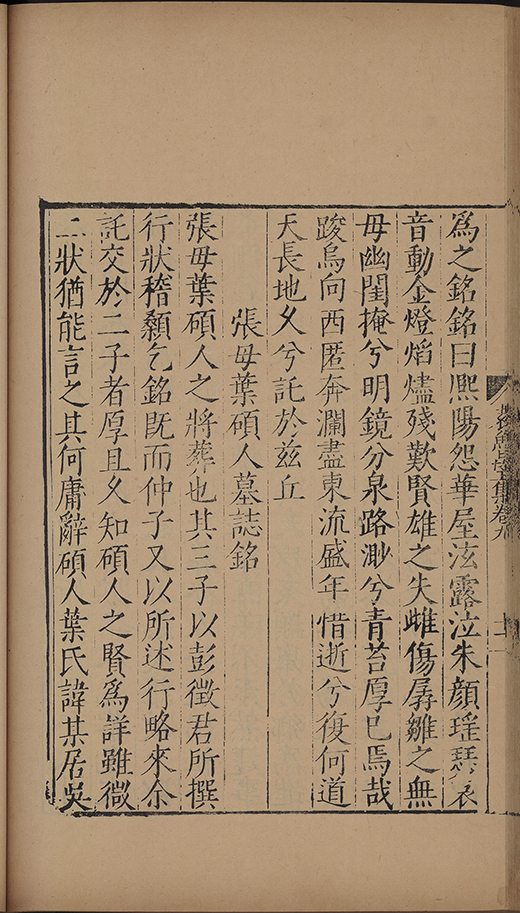 為之銘銘曰凞陽怨華屋泫露泣朱顔瑶瑟哀
音動金燈熖燼殘歎賢雄之失雌傷孱雛之無
毋幽閨掩兮明鏡分泉路渺兮青苔厚已焉哉
踆烏向西匿奔瀾盡東流盛年惜逝兮復何道
天長地久兮託於兹丘
張毋葉碩人墓誌銘
張毋葉碩人之將葬也其三子以彭徵君所撰
行狀稽顙乞銘既而仲子又以所述行略來余
託交於二子者厚且久知碩人之賢為詳雖微
二狀猶能言之其何庸辭碩人葉氏諱某居吳
集卷九